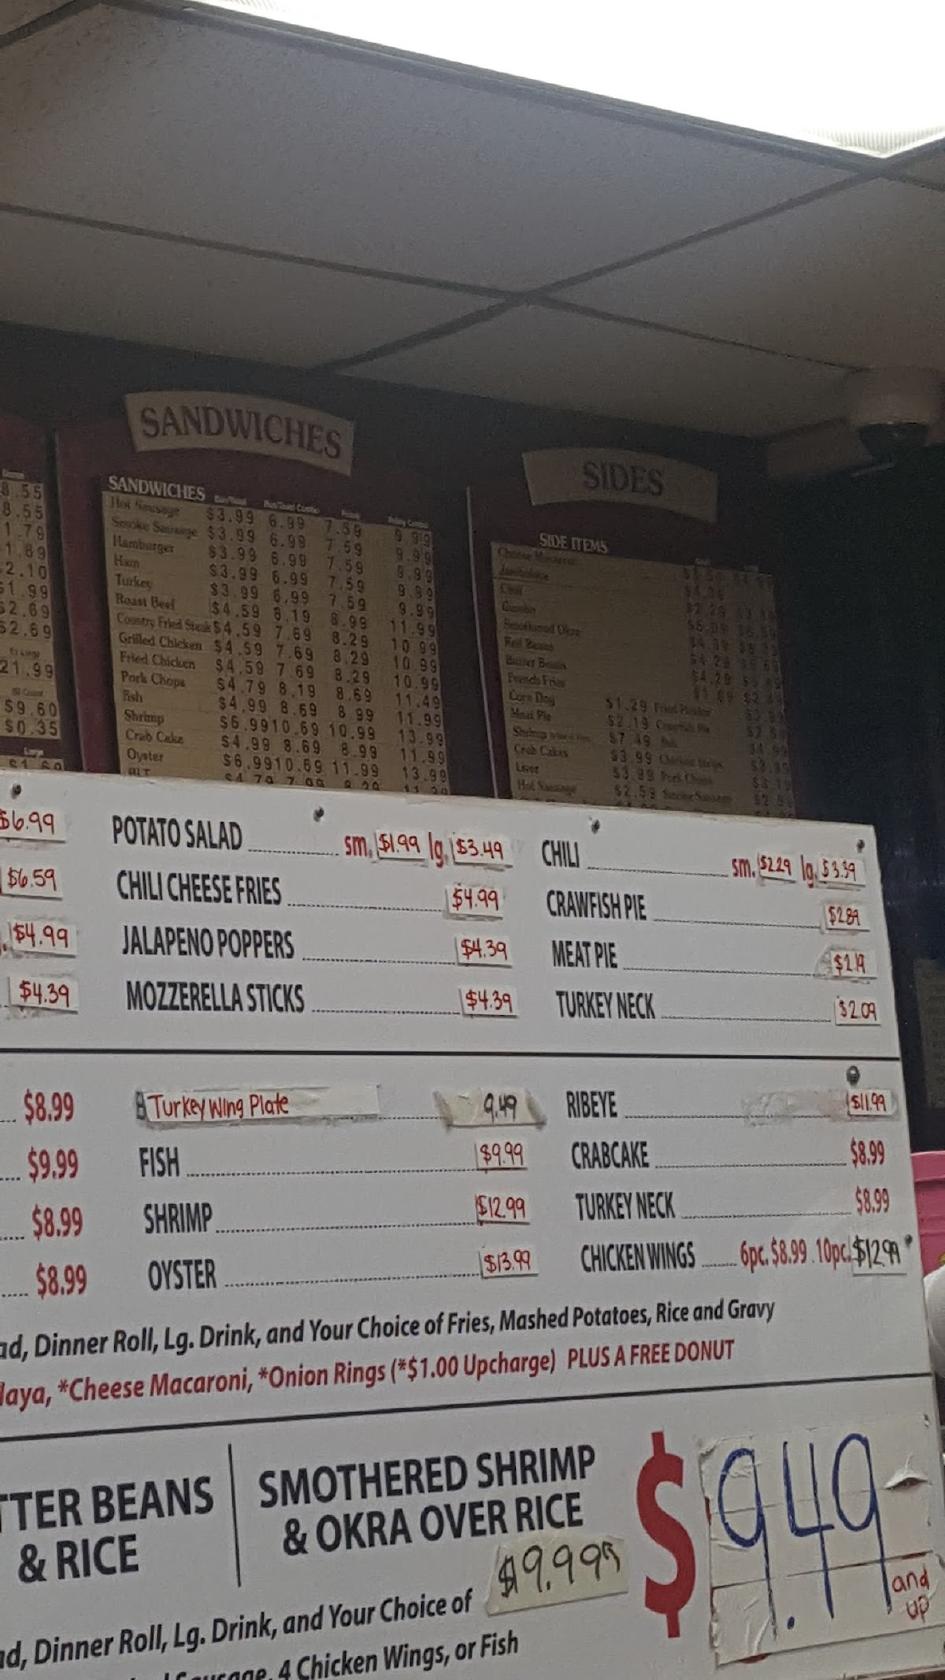 SANDWICHES
SIDES
8.55
8.55
1.79
1.89
2.10
$1.99
$2.69
$2.69
21.99
$9.60
$0.35
Large
$1.69
SANDWICHES
Hot Sausage $3.99 6.99 7.59 9.99
Smoke Sausage $3.99 6.99 7.59 9.99
Hamburger $3.99 6.99 7.59 9.99
Ham $3.99 6.99 7.59 9.99
Turkey $3.99 6.99 7.59 9.99
Roast Beef $4.59 8.19 8.99 11.99
Country Fried Steak $4.59 7.69 8.29 10.99
Grilled Chicken $4.59 7.69 8.29 10.99
Fried Chicken $4.59 7.69 8.29 10.99
Pork Chops $4.79 8.19 8.69 11.49
Fish $4.99 8.69 8.99 11.99
Shrimp $6.99 10.69 10.99 13.99
Crab Cake $4.99 8.69 8.99 11.99
Oyster $6.99 10.69 11.99 13.99
BLT $4.79 7.99 8.29
SIDE ITEMS
Cheese Macaroni
Jambalaya
Chili
Gumbo
Smothered Okra
Red Beans
Butter Beans
French Fries
Corn Dog $1.29
Meat Pie $2.19
Shrimp $7.49
Crab Cakes $3.99
Liver $3.99 Pork Chops
Hot Sausage $2.59 Smoke Sausage
$6.99 POTATO SALAD sm. $1.99 lg. $3.49 CHILI sm. $2.29 lg. $3.39
$6.59 CHILI CHEESE FRIES $4.99 CRAWFISH PIE $2.89
$4.99 JALAPENO POPPERS $4.39 MEAT PIE $2.19
$4.39 MOZZERELLA STICKS $4.39 TURKEY NECK $2.09
$8.99 Turkey Wing Plate 9.49 RIBEYE $11.99
$9.99 FISH $9.99 CRABCAKE $8.99
$8.99 SHRIMP $12.99 TURKEY NECK $8.99
$8.99 OYSTER $13.99 CHICKEN WINGS 6pc. $8.99 10pc. $12.99
ad, Dinner Roll, Lg. Drink, and Your Choice of Fries, Mashed Potatoes, Rice and Gravy
laya, *Cheese Macaroni, *Onion Rings (*$1.00 Upcharge) PLUS A FREE DONUT
TTER BEANS
& RICE
SMOTHERED SHRIMP
& OKRA OVER RICE
$9.99
$9.49
and
up
ad, Dinner Roll, Lg. Drink, and Your Choice of
Sausage, 4 Chicken Wings, or Fish